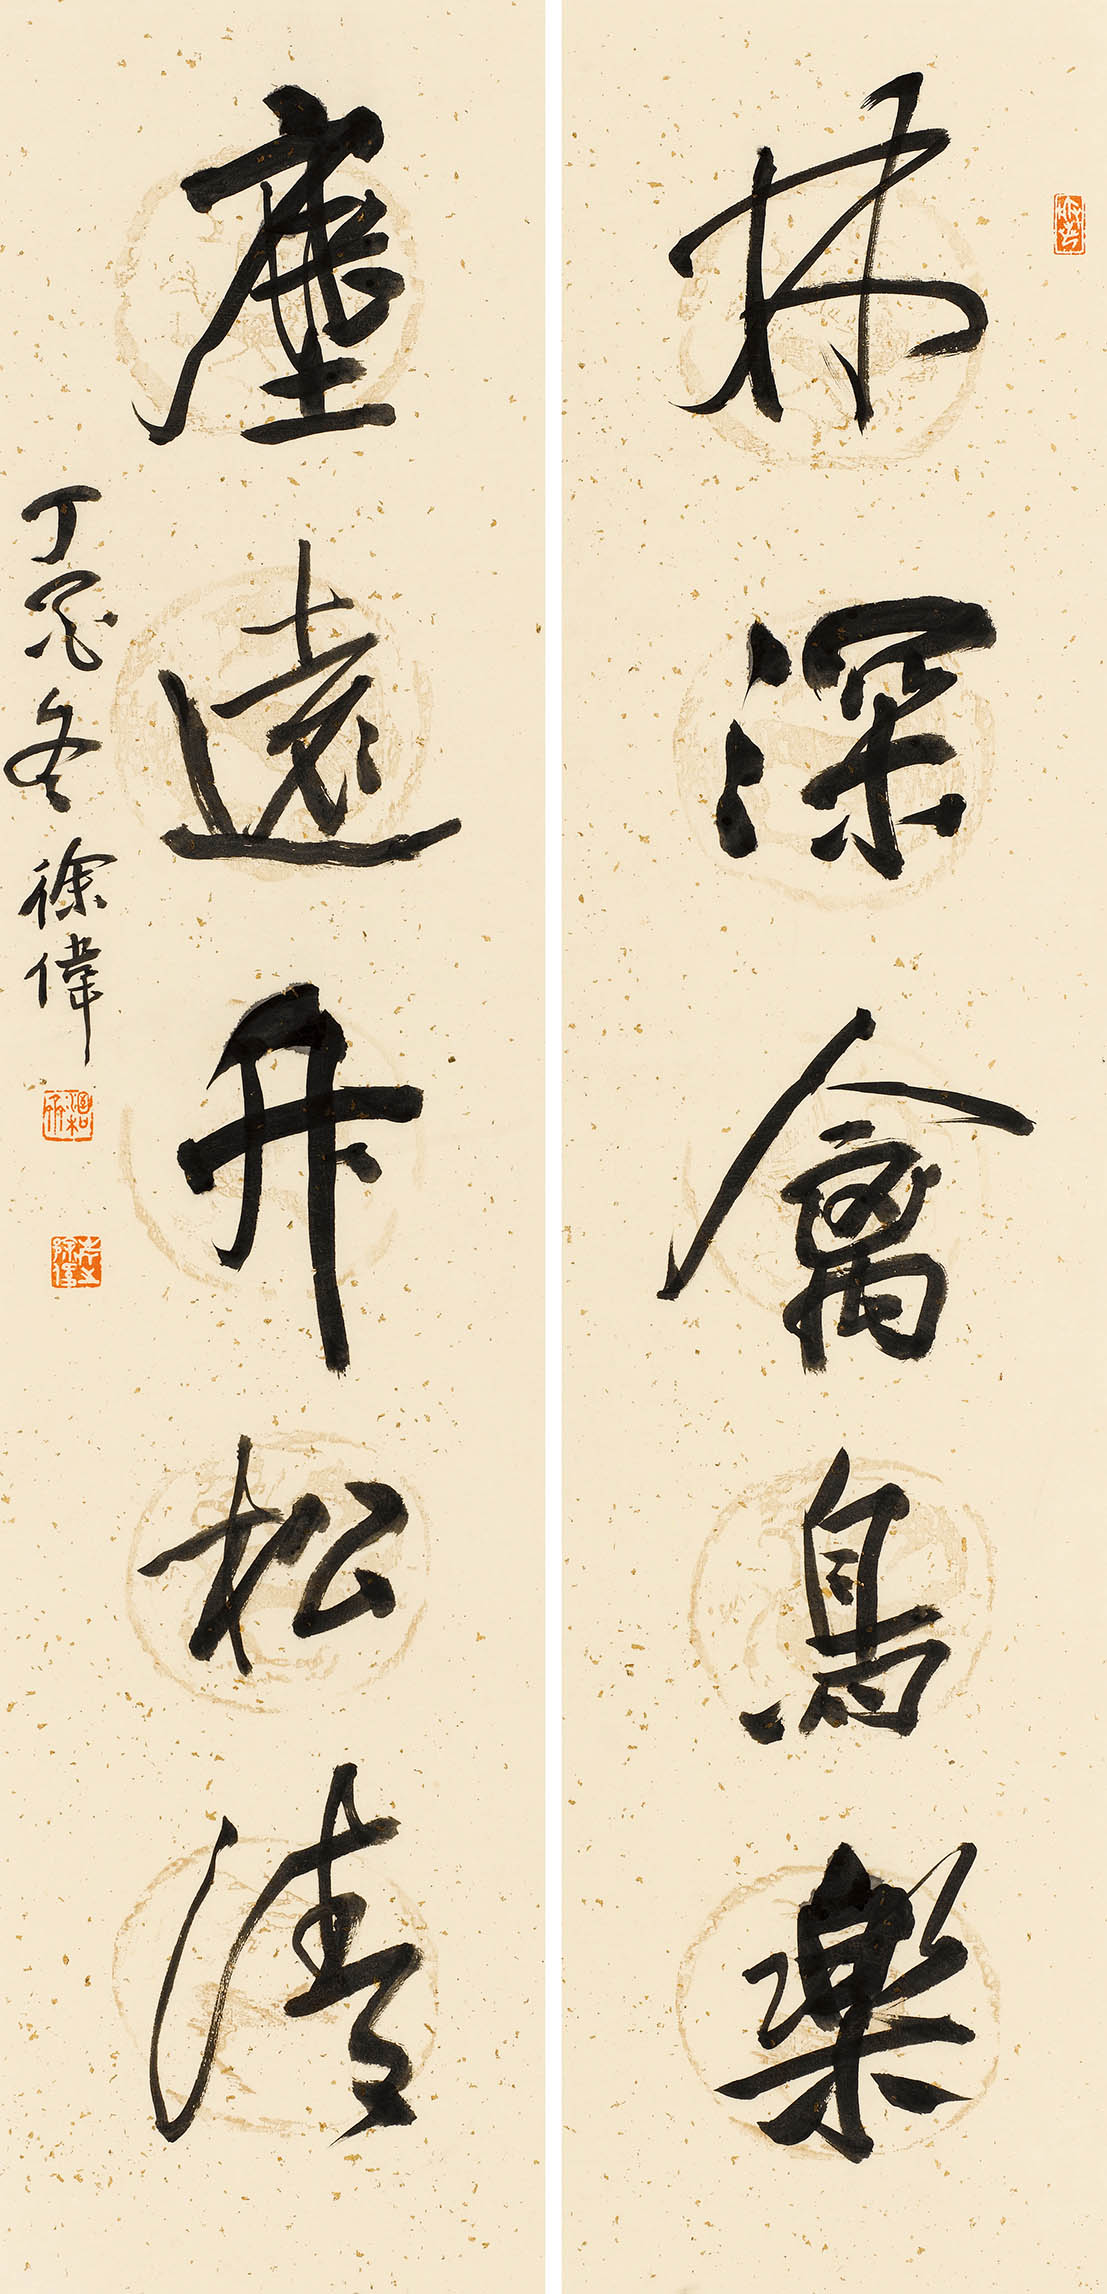 林深禽鳥樂
塵遠竹松清
丁酉冬徐偉